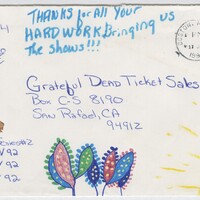 THANKS for All Your
HARD WORK Bringing us
The shows!!!
Grateful Dead Ticket Sales
Box C-S 8190
San Rafael, CA
94912
92
V 92
V 92